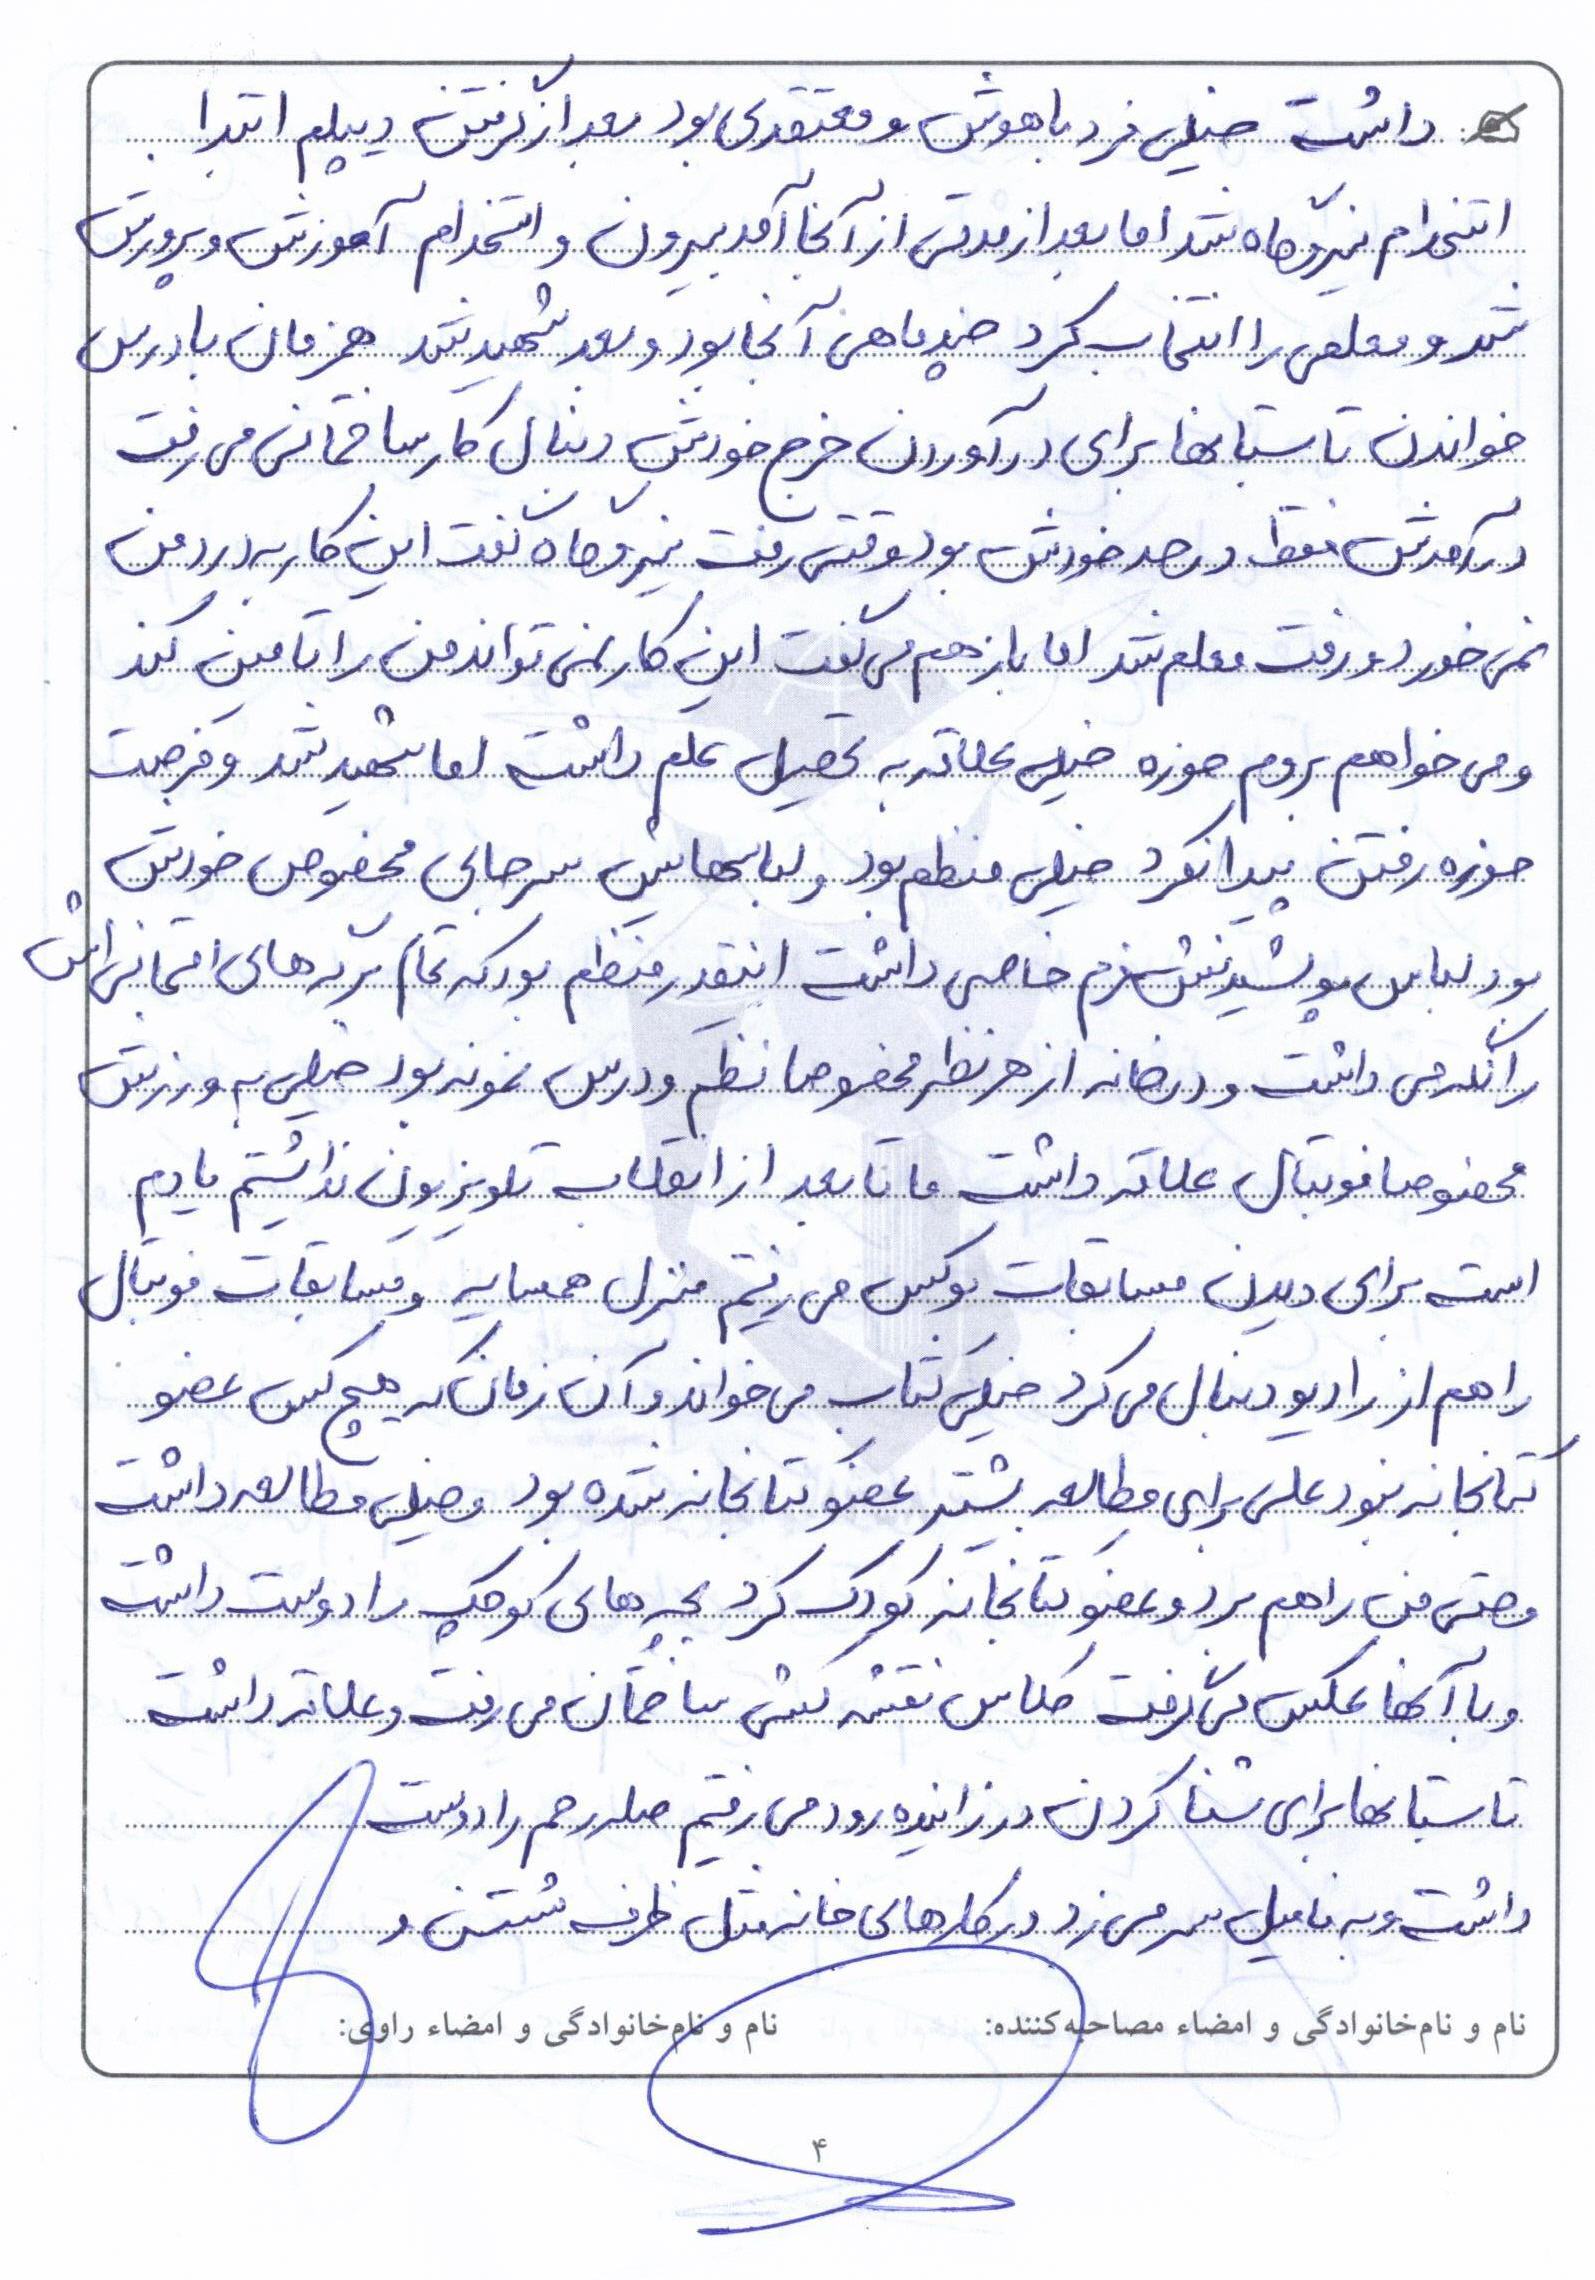 داشت خیلی فرد باهوش و معتقدی بود بعد از گرفتن دیپلم ابتدا
استخدام نیروگاه شد اما بعد از مدتی از آنجا آمد بیرون و استخدام آموزش و پرورش
شد و معلمی را انتخاب کرد چند ماهی آنجا بود و بعد شهید شد همزمان با درس
خواندن تابستانها برای درآوردن خرج خودش دنبال کار ساختمانی می رفت
درآمدش فقط در حد خودش بود وقتی رفت نیروگاه گفت این کار به درد من
نمی خورد و رفت معلم شد اما باز هم می گفت این کار نمی تواند من را تامین کند
و می خواهم بروم حوزه خیلی علاقه به تحصیل علم داشت اما شهید شد و فرصت
حوزه رفتن پیدا نکرد خیلی منظم بود و لباسهایش سر جای مخصوص خودش
بود لباس پوشیدنش فرم خاصی داشت انقدر منظم بود که تمام برگه های امتحانی اش
را نگه می داشت و در خانه از هر نظر مخصوصا نظم و درس نمونه بود خیلی به ورزش
مخصوصا فوتبال علاقه داشت ما تا بعد از انقلاب تلویزیون نداشتیم یادم
است برای دیدن مسابقات بوکس می رفتیم منزل همسایه و مسابقات فوتبال
را هم از رادیو دنبال می کرد خیلی کتاب می خواند و آن زمان که هیچ کس عضو
کتابخانه نبود علی برای مطالعه بیشتر عضو کتابخانه شده بود و خیلی مطالعه داشت
و حتی من را هم برد و عضو کتابخانه کودک کرد بچه های کوچک را دوست داشت
و با آنها عکس می گرفت کلاس نقشه کشی ساختمان می رفت و علاقه داشت
تابستانها برای شنا کردن در زاینده رود می رفتیم صله رحم را دوست
داشت و به فامیل سر می زد در کارهای خانه مثل ظرف شستن و
نام و نام‌خانوادگی و امضاء مصاحبه‌کننده: نام و نام‌خانوادگی و امضاء راوی:
۴